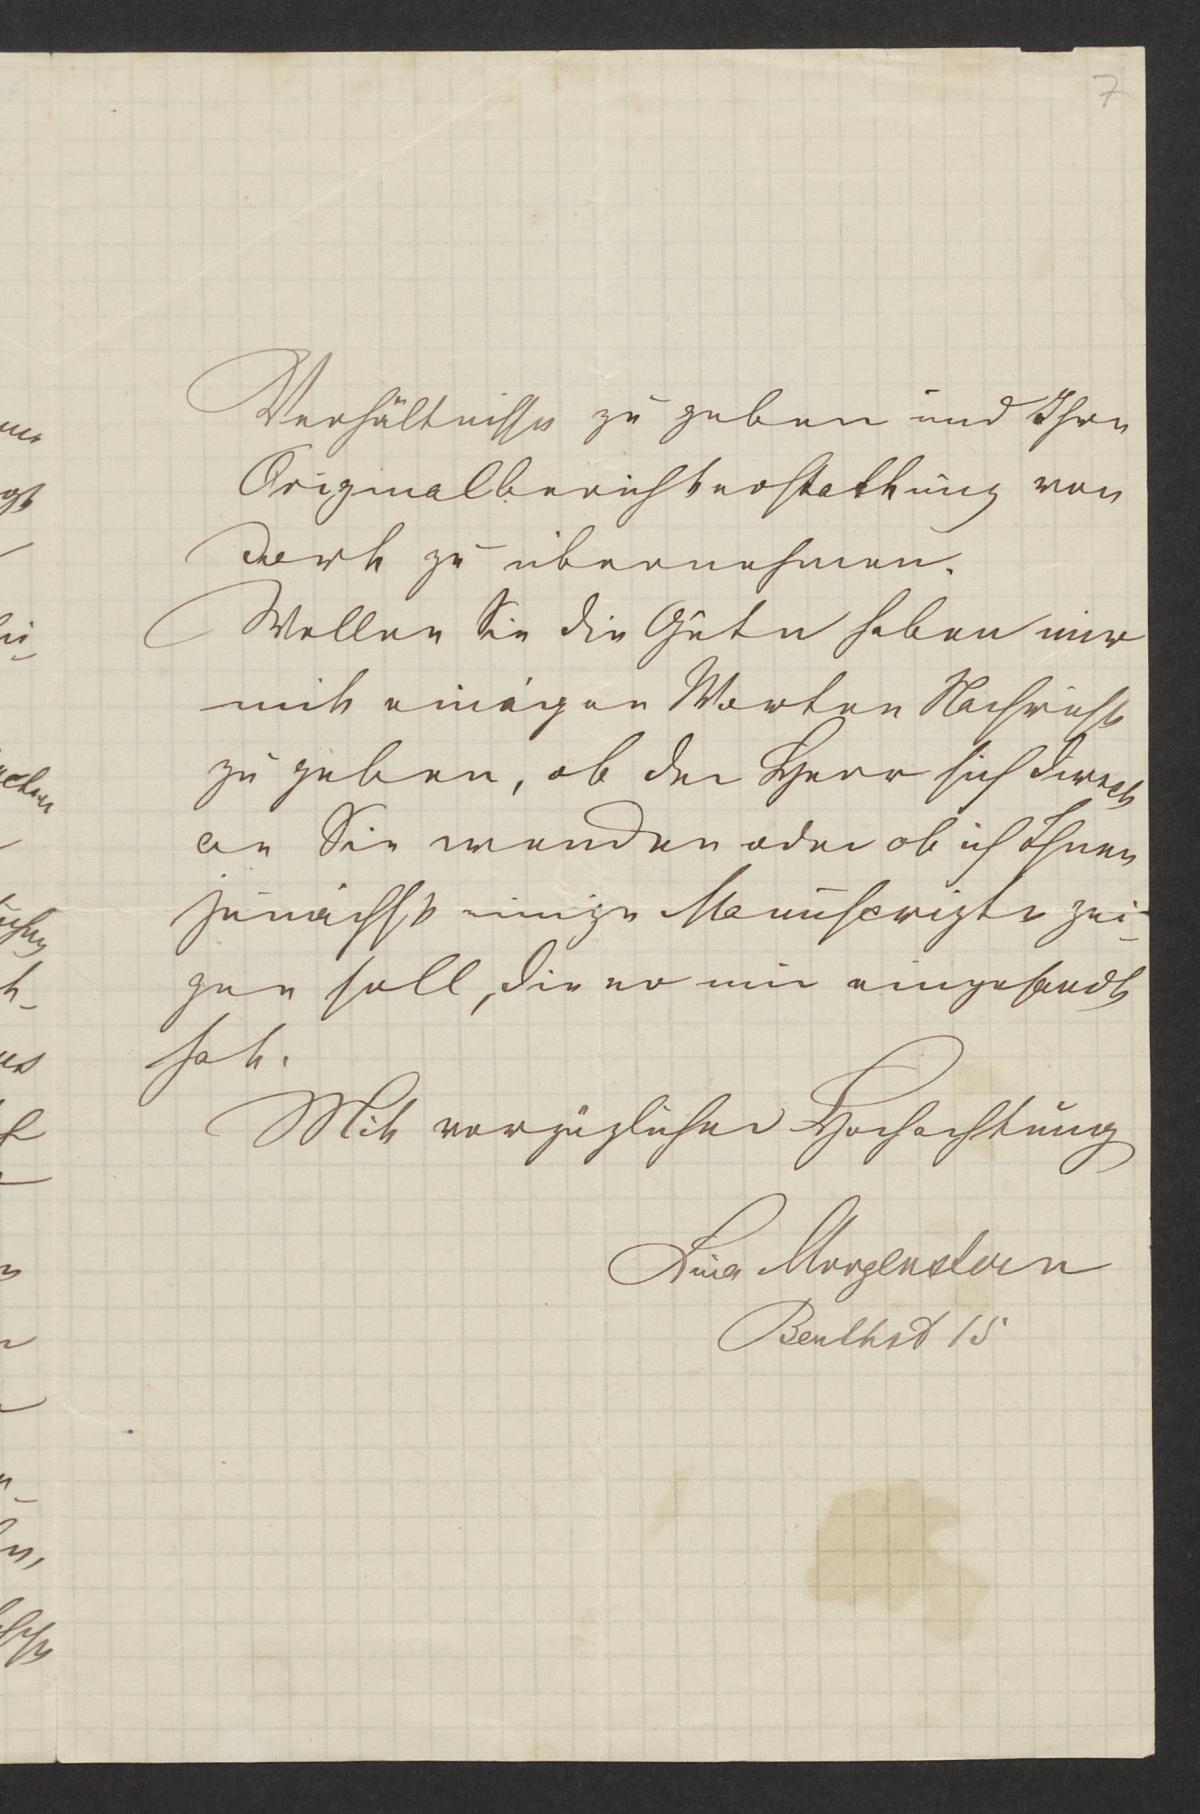 7
Verhältnisse zu geben und Ihre
Originalberichterstattung von
dort zu übernehmen.
Wollen Sie die Güte haben mir
mit einigen Worten Nachricht
zu geben, ob der Herr sich direct
an Sie wenden oder ob ich Ihnen
zunächst einige Manuscripte zei-
gen soll, die er mir eingesandt
hat.
Mit vorzüglicher Hochachtung
Lina Morgenstern
Beuthst 15